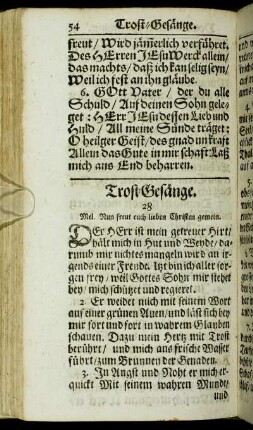 54 Trost-Gesänge.
freut/ Wird jäm̃erlich verführet.
Des HErren JEsu Werck allein/
Das machts/ daß ich kan selig seyn/
Weil ich fest an ihn gläube.
6. GOtt Vater/ der du alle
Schuld/ Auf deinen Sohn gele-
get: HErr JEsu dessen Lieb und
Huld/ All meine Sünde träget:
O heilger Geist/ des gnad un̄ kraft
Allein das Gute in mir schaft: Laß
mich ans End beharren.
Trost Gesänge.
28
Mel. Nun freut euch lieben Christen gemein.
DEr HErr ist mein getreuer Hirt/
hält mich in Hut und Weyde/ da-
rumb mir nichtes mangeln wird an ir-
gends einer Freude. Itzt bin ich aller sor-
gen frey/ weil Gottes Sohn mir stehet
bey/ mich schützet und regieret.
2. Er weidet mich mit seinem Wort
auf einer grünen Auen/ und läst sich bey
mir fort und fort in wahrem Glauben
schauen. Dazu mein Hertz mit Trost
berührt/ und mich ans frische Wasser
führt/ zum Brunnen der Genaden.
3. In Angst und Noht er mich er-
quickt Mit seinem wahren Munde/
und